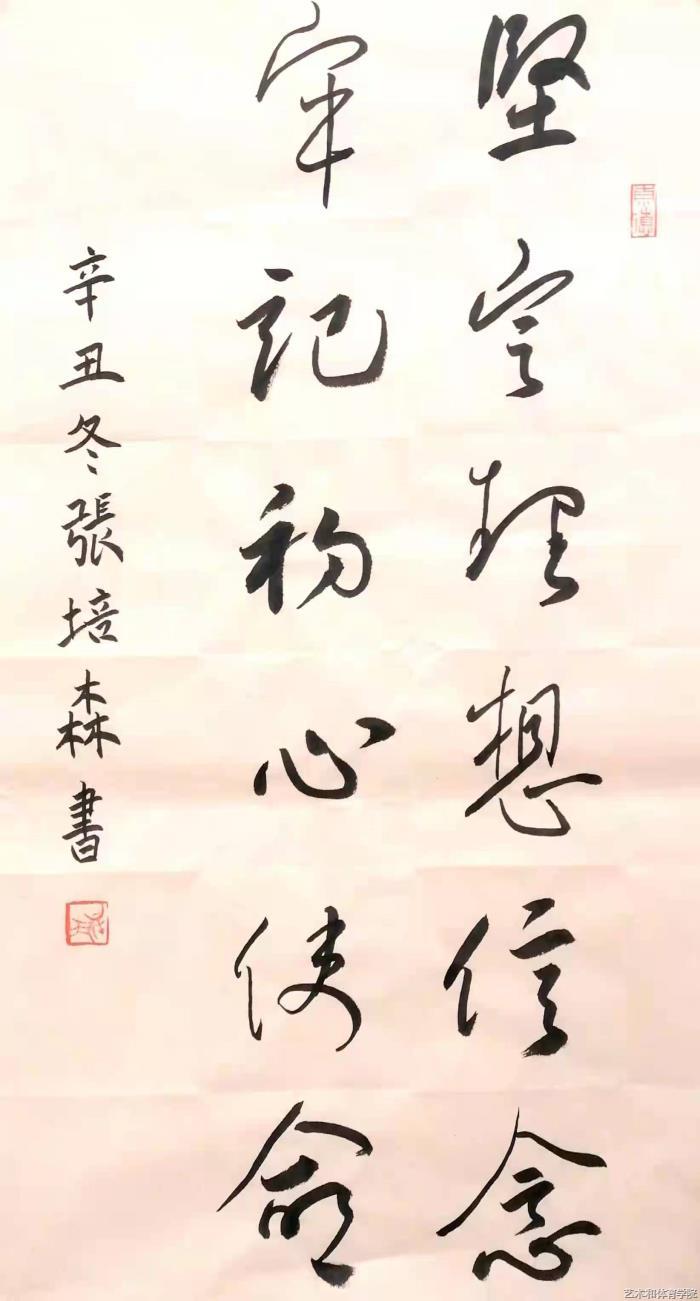 堅定理想信念
牢記初心使命
辛丑冬張培森書
艺术和体育学院